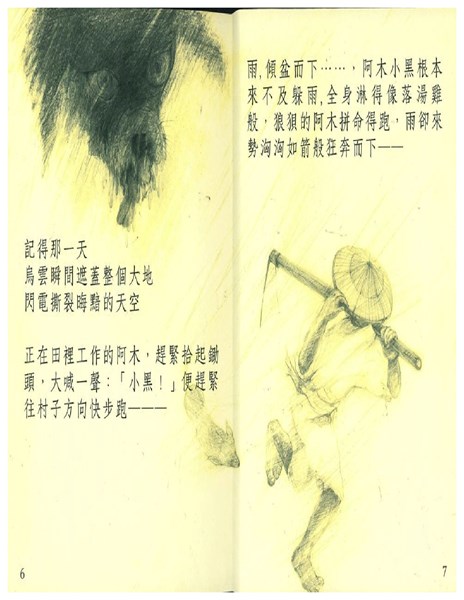 記得那一天
烏雲瞬間遮蓋整個大地
閃電撕裂晦黯的天空
正在田裡工作的阿木，趕緊拾起鋤
頭，大喊一聲：「小黑！」便趕緊
往村子方向快步跑———
6
雨,傾盆而下……，阿木小黑根本
來不及躲雨,全身淋得像落湯雞
般，狼狽的阿木拼命得跑，雨卻來
勢洶洶如箭般狂奔而下——
7